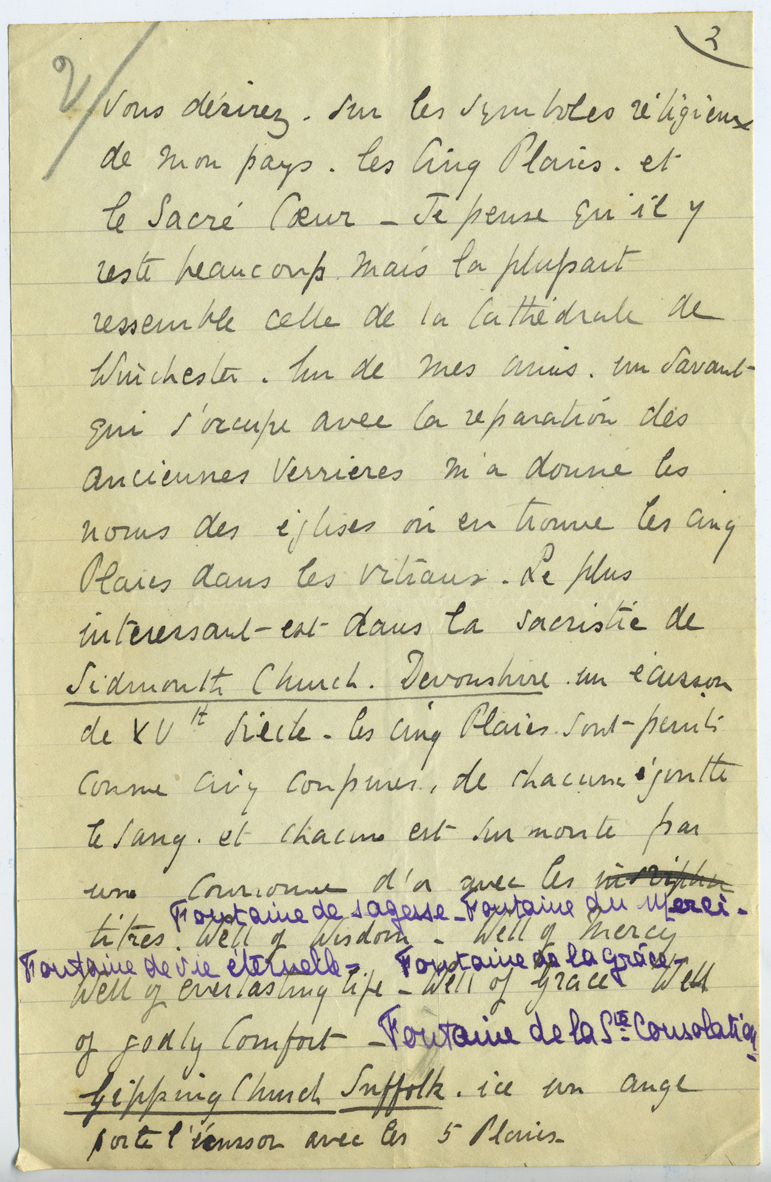 2/
3
vous désirez. sur les symboles réligieux
de mon pays. les Cinq Plaies. et
le Sacré Cœur – Je pense qu'il y
reste beaucoup mais la plupart
ressemble celle de la Cathédrale de
Winchester. Un de mes amis. un savant
qui s'occupe avec la reparation des
anciennes verrieres m'a donné les
noms des églises où en trouve les cinq
Plaies dans les vitraux. Le plus
interessant est dans la sacristie de
Sidmouth Church. Devonshire. un écusson
de XV siècle – les cinq Plaies sont peints
comme cinq coupures, de chacune égoutte
le sang. et chacune est surmonté par
une couronne d'or avec les
Fontaine de sagesse – Fontaine du Merci –
titres. Well of Wisdom – Well of Mercy
Fontaine de vie éternelle – Fontaine de la grâce –
Well of everlasting life – Well of Grace Well
of godly Comfort – Fontaine de la Ste Consolation
Gipping Church Suffolk. ice un ange
porte l'écusson avec les 5 Plaies –